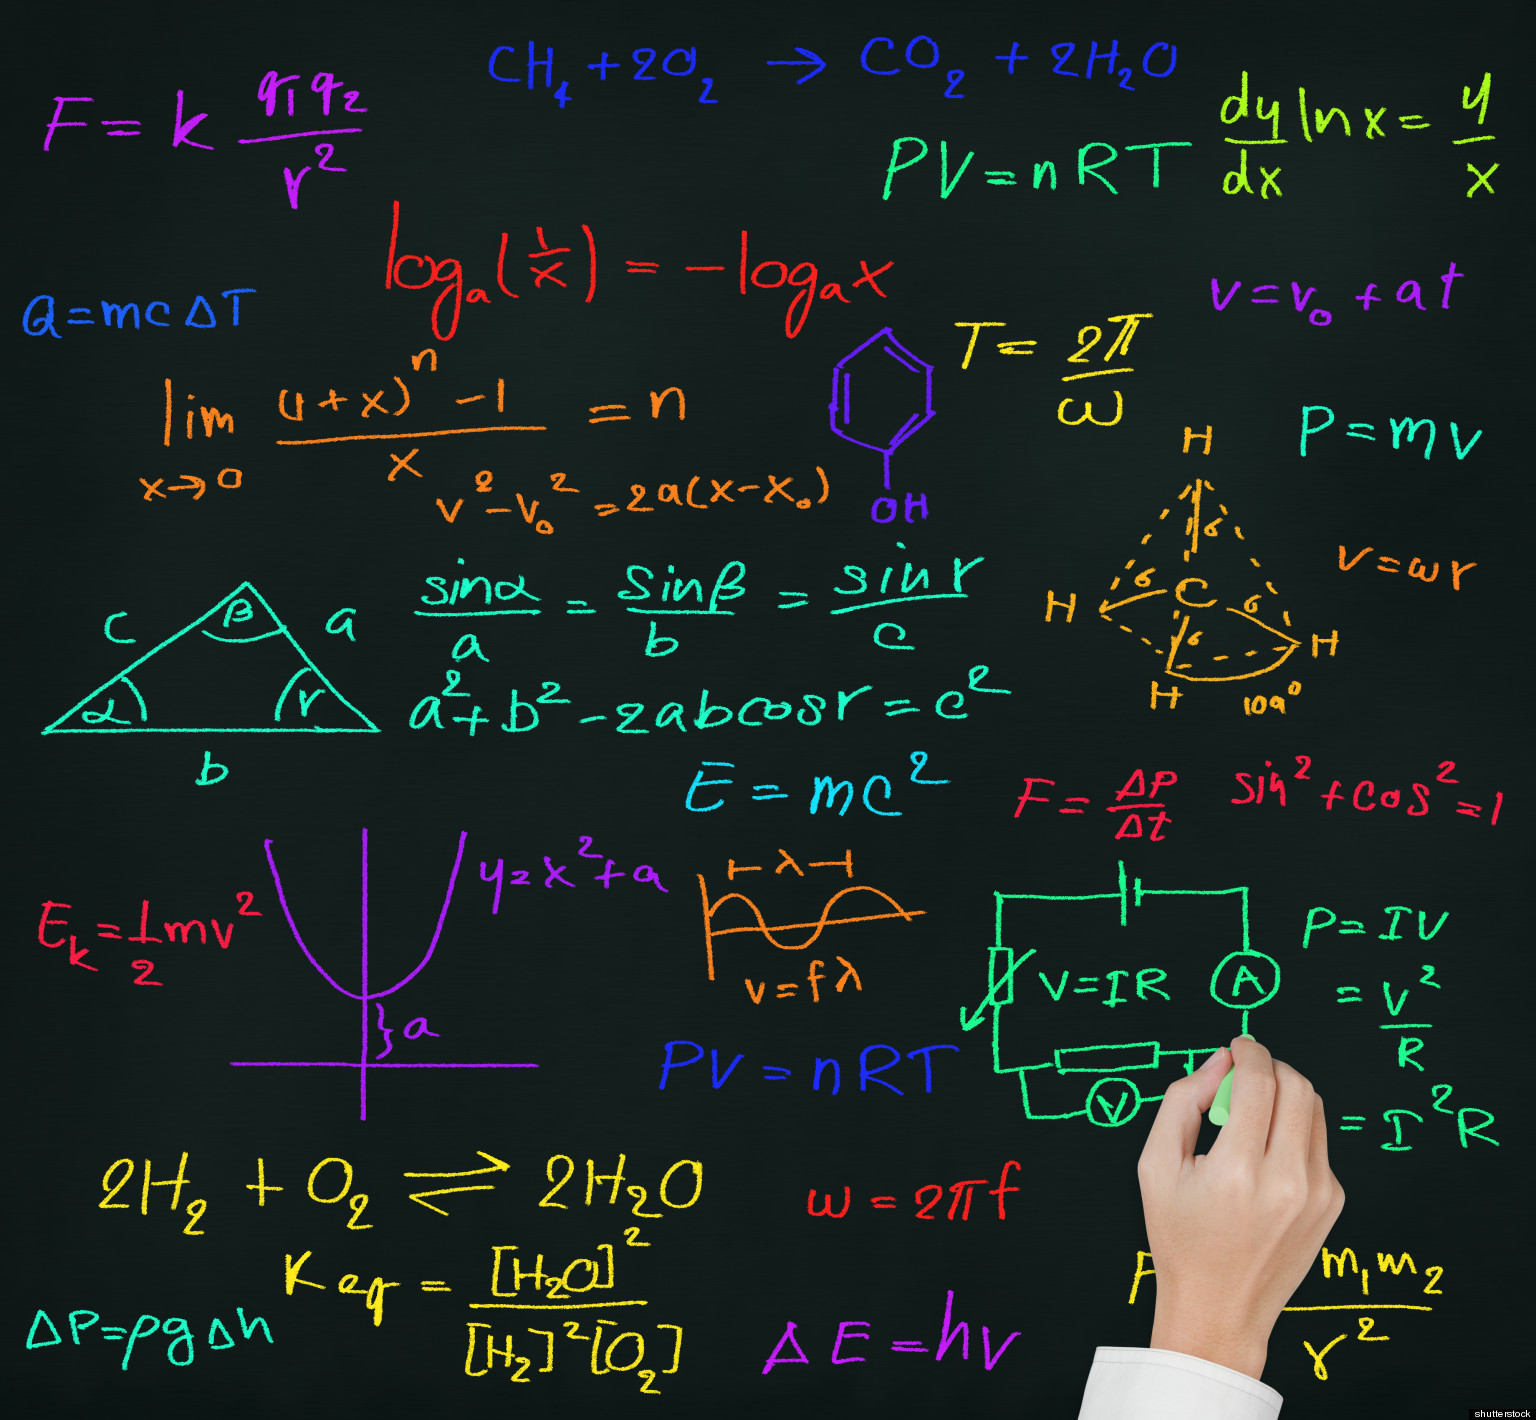 CH₄ + 2O₂ → CO₂ + 2H₂O
F = k q₁q₂ / r²
dy/dx ln x = y/x
PV = nRT
logₐ(1/x) = -logₐx
Q = mcΔT
v = v₀ + at
T = 2π/ω
lim x→0 ((1+x)ⁿ - 1) / x = n
P = mv
v² - v₀² = 2a(x - x₀)
OH
H
σ
H σ C σ H
σ
H 109°
v = ωr
c β a
α r
b
sinα/a = sinβ/b = sin r/c
a² + b² - 2abcosr = c²
E = mc²
F = ΔP/Δt
sin² + cos² = 1
y = x² + a
a
Eₖ = 1/2 mv²
λ
v = fλ
V = IR
A
V
P = IV
= V²/R
= I²R
PV = nRT
2H₂ + O₂ ⇌ 2H₂O
ω = 2πf
Keq = [H₂O]² / [H₂]²[O₂]
ΔP = ρgΔh
ΔE = hv
F m₁m₂ / r²
shutterstock